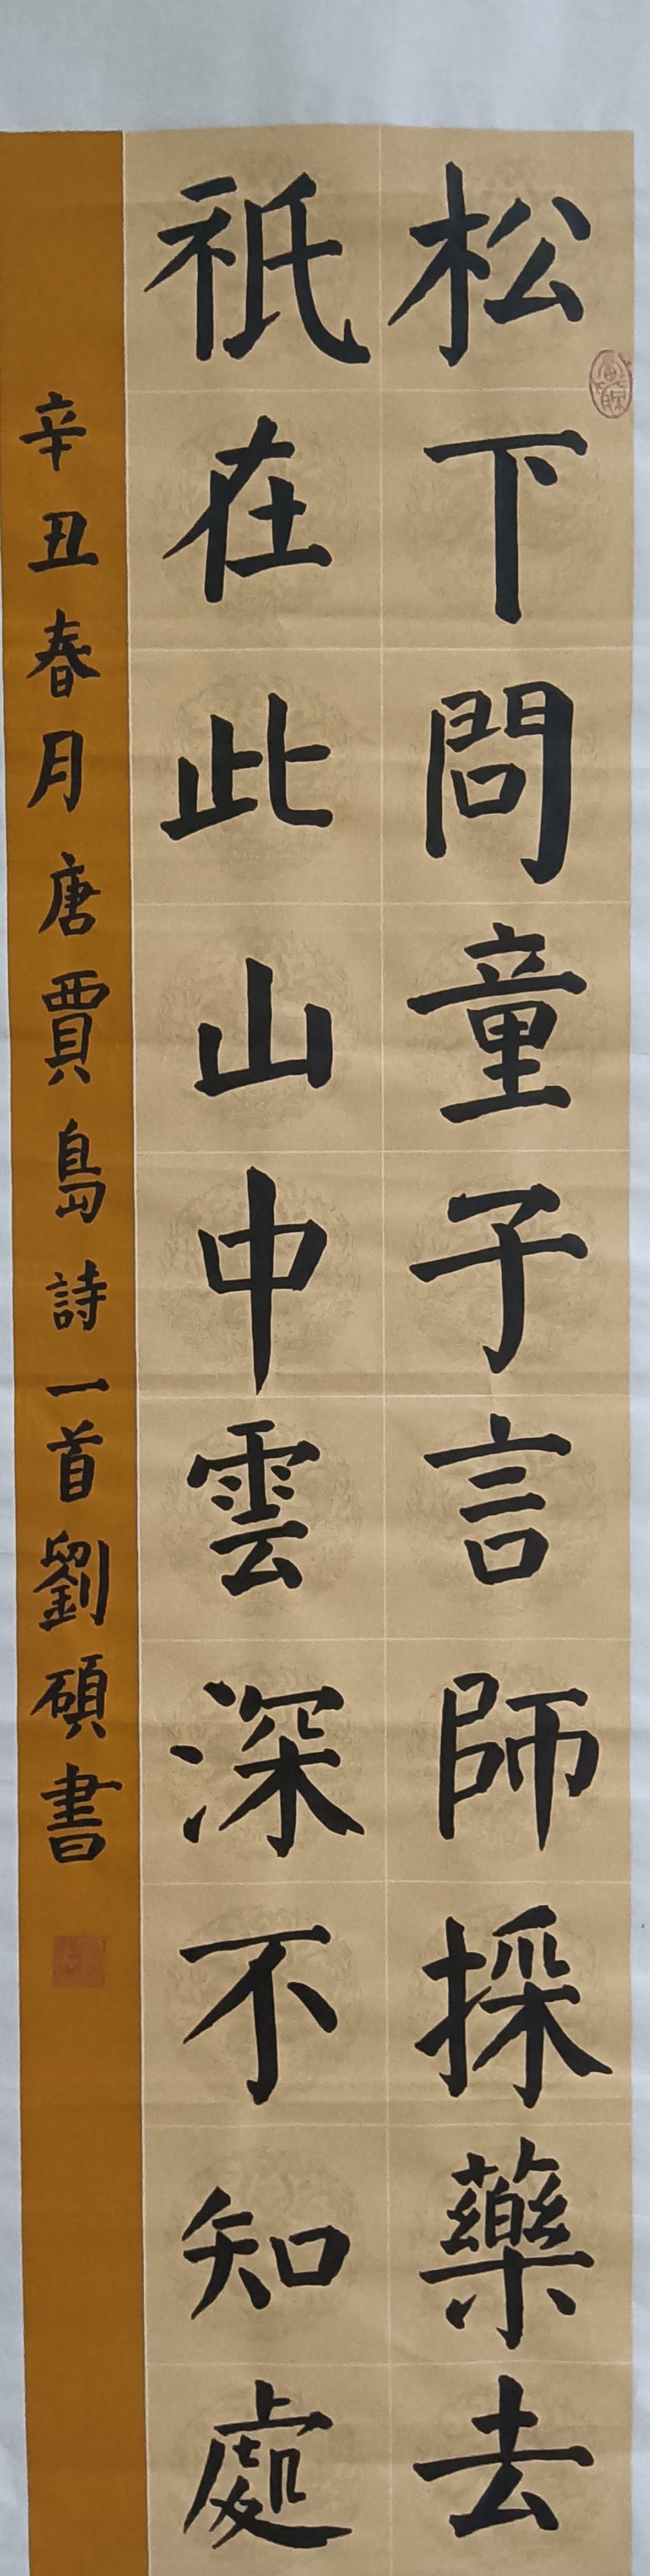 松下問童子言師採藥去
祇在此山中雲深不知處
辛丑春月唐賈島詩一首劉碩書